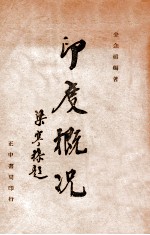 金念祖編著
印度概況
梁寒操題
正中書局印行